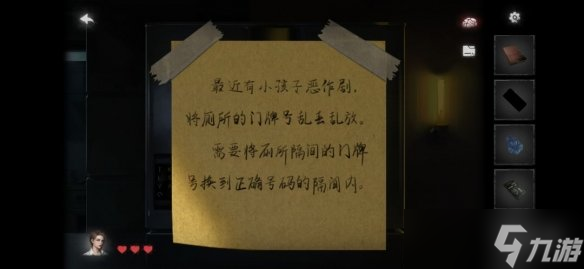 最近有小孩子恶作剧,
将厕所的门牌号乱丢乱放。
需要将厕所隔间的门牌
号换到正确号码的隔间内。
九游